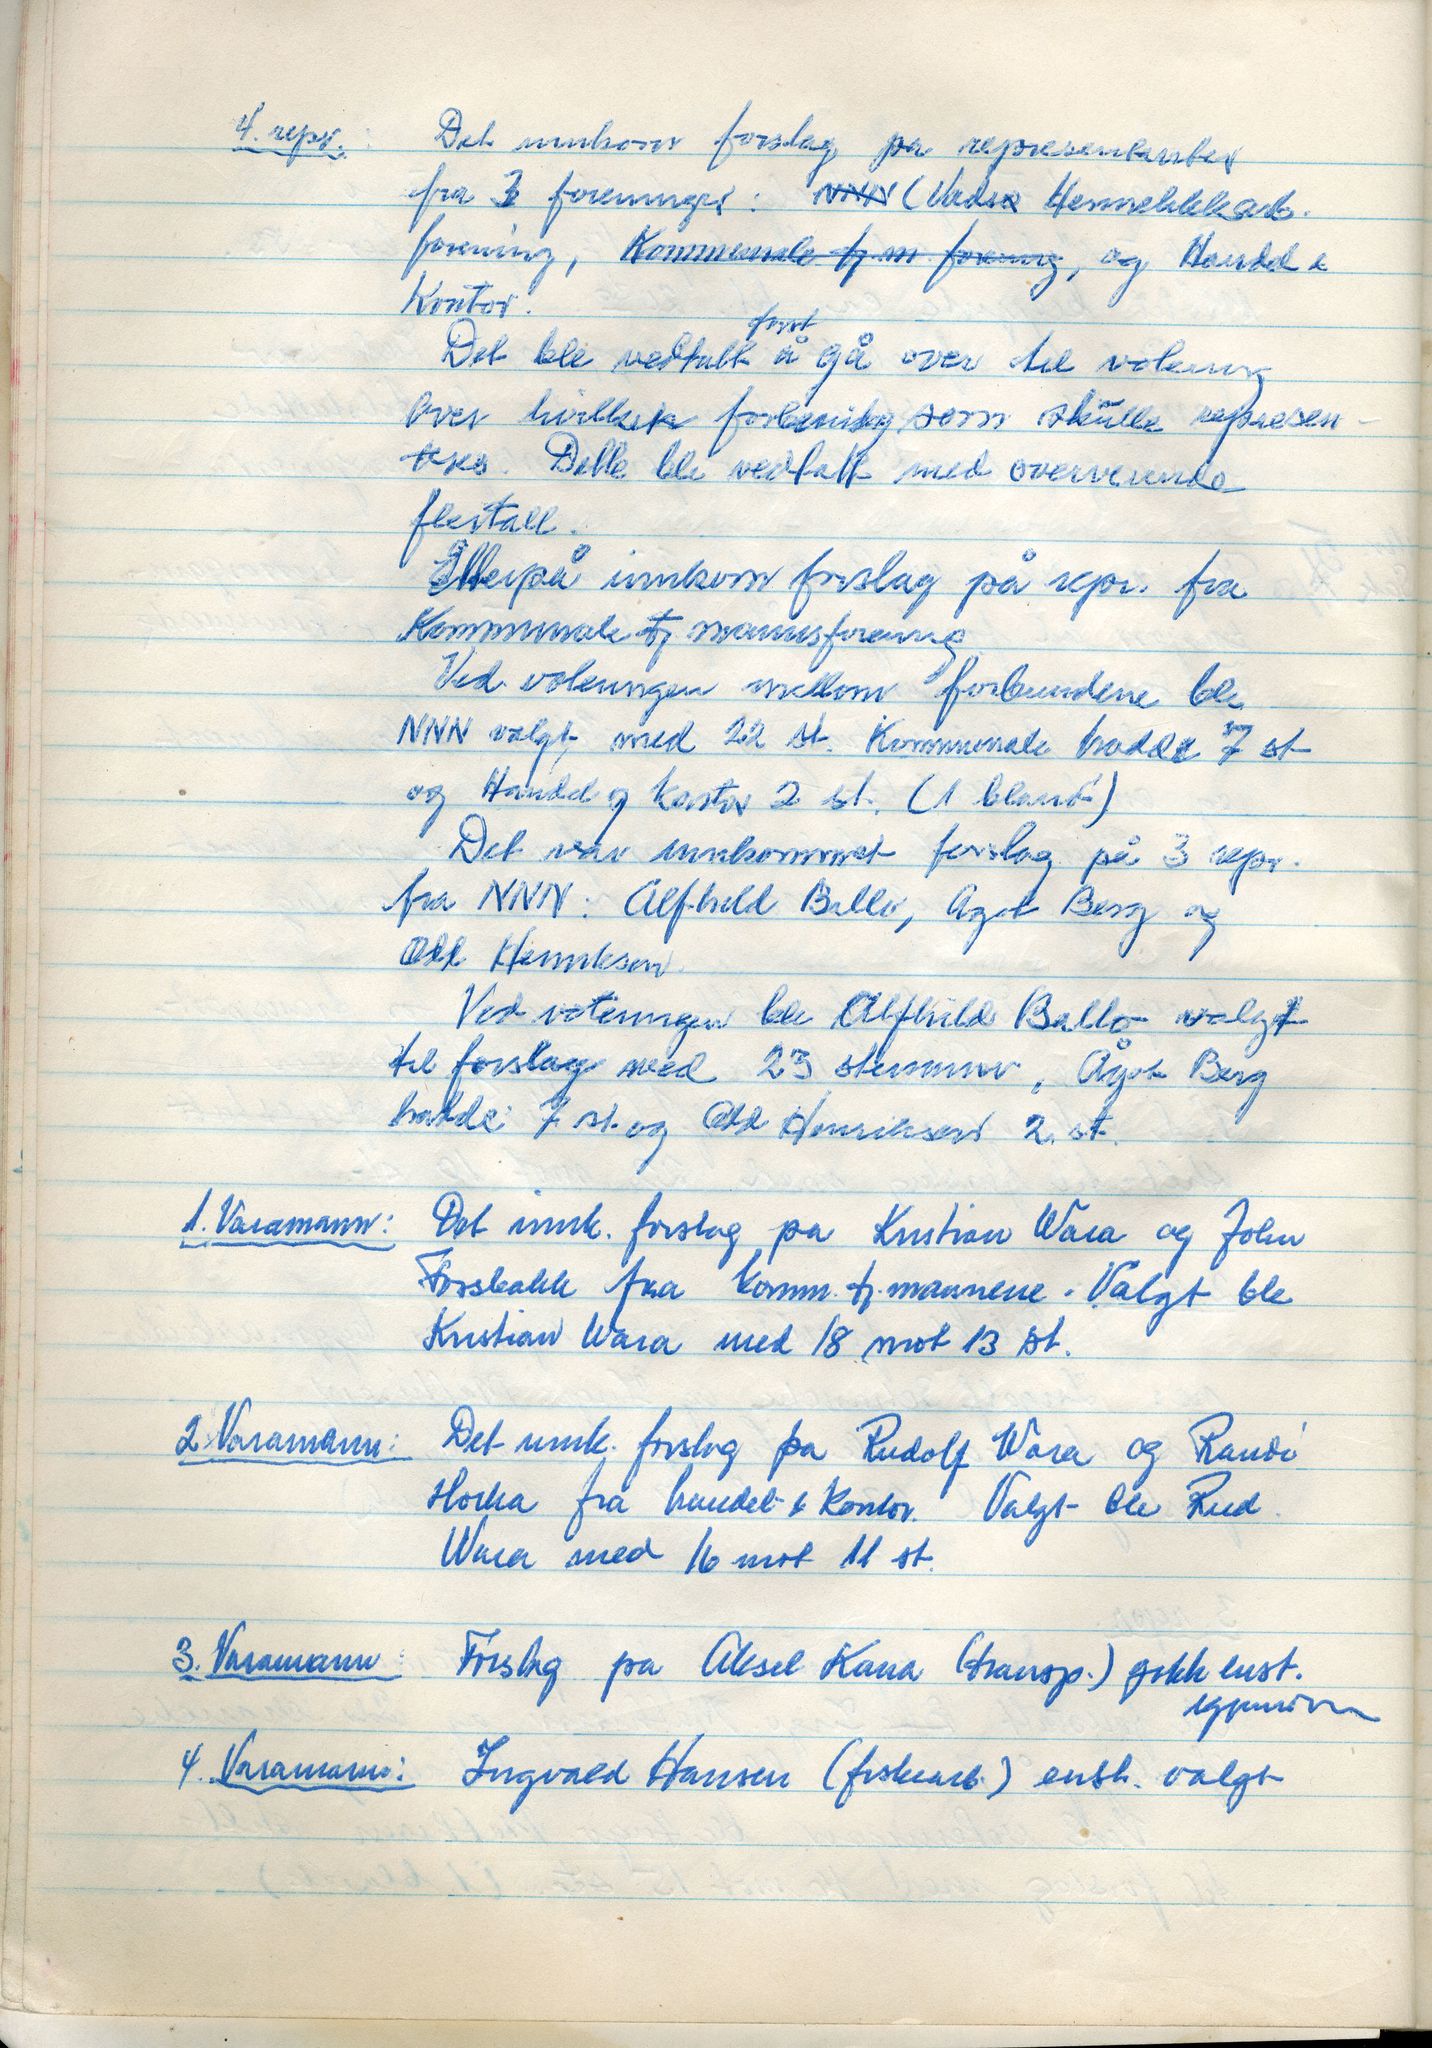 4. repr.: Det innkom forslag på representanter
fra 3 foreninger: NNN (Vadsø Hermetikkarb.
forening, Kommunale tj.m. forening, og Handel &
Kontor.
først
Det ble vedtatt å gå over til votering
over hvilken som skulle represen-
teres. Dette ble vedtatt med overveiende
flertall.
Etterpå innkom forslag på repr. fra
Kommunale tj mannsforening
Ved voteringen mellom forbundene ble
NNN valgt med 22 st. Kommunale hadde 7 st
og Handel og Kontor 2 st. (1 blank)
Det var innkommet forslag på 3 repr.
fra NNN: Alfhild Ballo, Ågot Berg og
Odd Henriksen.
Ved voteringen ble Alfhild Ballo valgt
til forslag med 23 stemmer, Ågot Berg
hadde 7 st. og Odd Henriksen 2 st.
1. Varamann: Det innk. forslag på Kristian Wara og John
Forsbakk fra komm. tj. mannene. Valgt ble
Kristian Wara med 18 mot 13 st.
2. Varamann: Det innk. forslag på Rudolf Wara og Randi
fra handel & Kontor. Valgt ble Rud.
Wara med 16 mot 11 st.
3. Varamann: Forslag på Aksel Kana (transp.) gikk enst.
igjennom
4. Varamann: Ingvald Hansen (fiskearb.) enst. valgt